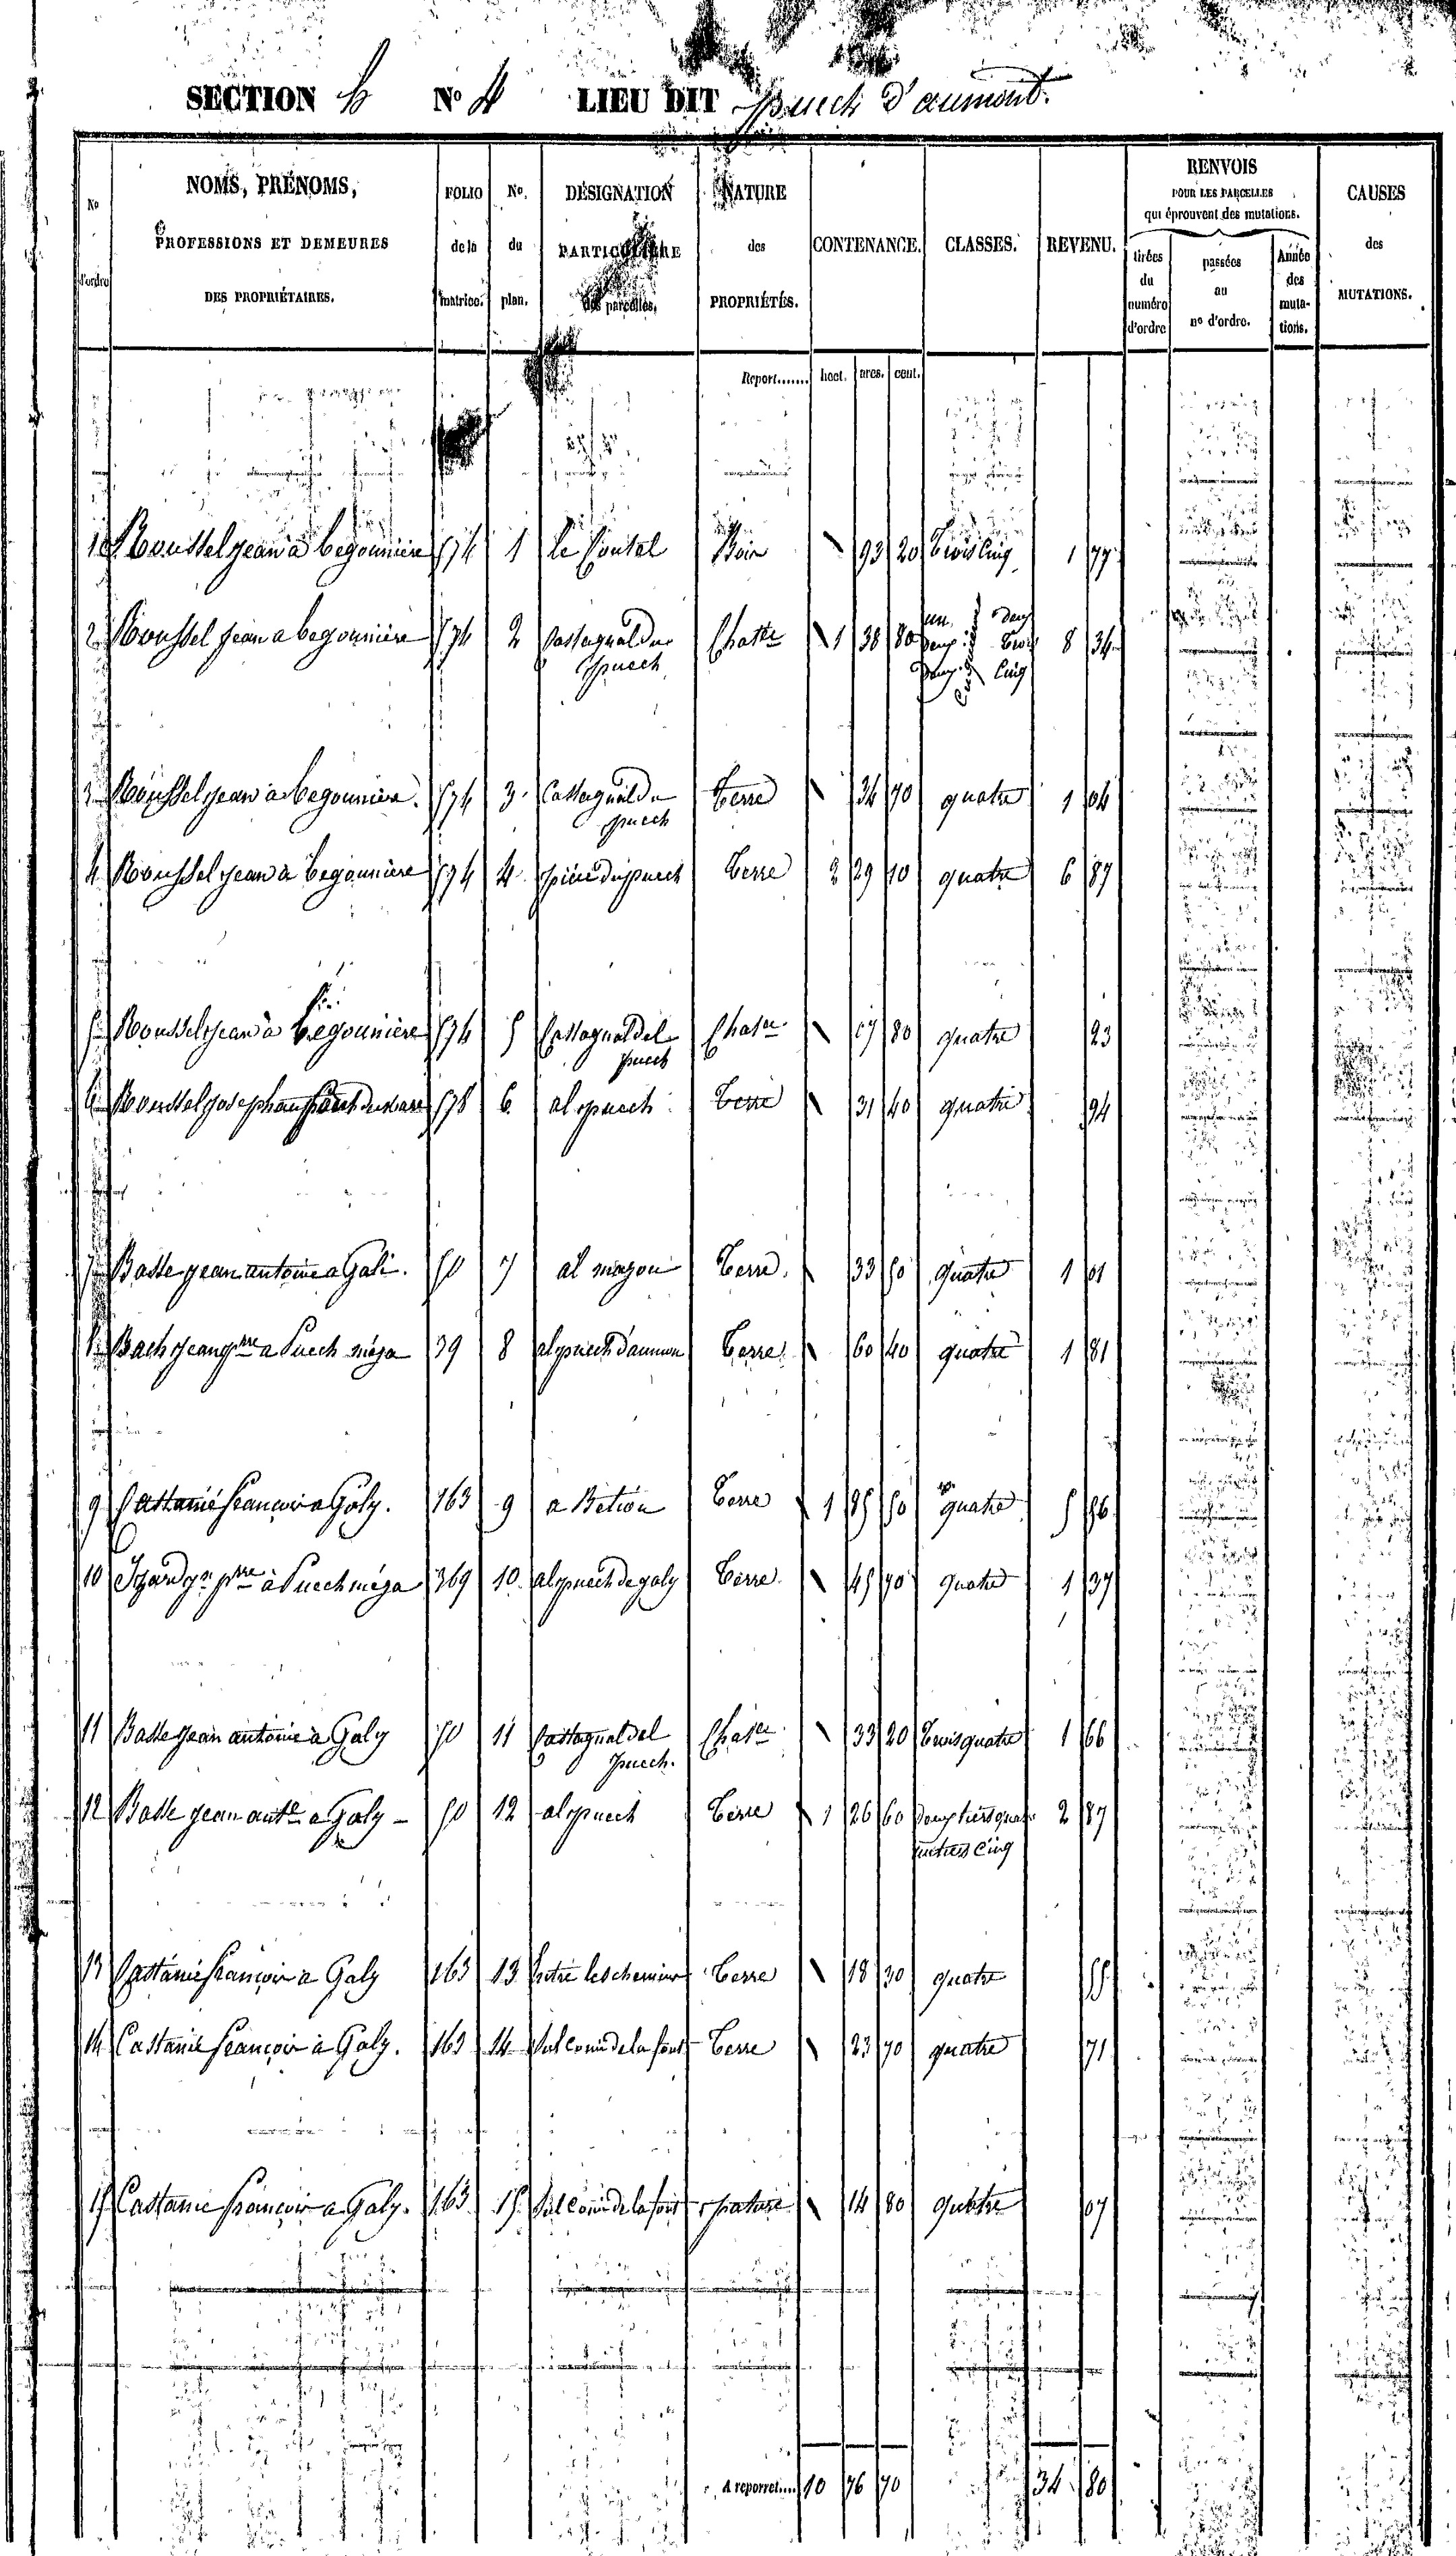 SECTION b N° 4 LIEU DIT puech d'aumont.
No d'ordre
NOMS, PRÉNOMS, PROFESSIONS ET DEMEURES DES PROPRIÉTAIRES.
FOLIO de la matrice.
No. du plan.
DÉSIGNATION PARTICULIÈRE des parcelles.
NATURE des PROPRIÉTÉS.
CONTENANCE.
CLASSES.
REVENU.
RENVOIS POUR LES PARCELLES qui éprouvent des mutations.
tirées du numéro d'ordre
passées au no d'ordre.
Année des mutations.
CAUSES des MUTATIONS.
Report....... hect. ares. cent.
1 Roussel jean à begounière 574 1 le Contal 93 20 trois cinq 1 77
2 Roussel jean a begounière 574 2 Castagnal du puech Chatre 1 38 80 8 34
3 Roussel jean à begounière. 574 3 Castagnal du puech terre 34 70 quatre 1 04
4 Roussel jean à begounière 574 4 pièce du puech terre 2 29 10 quatre 6 87
5 Roussel jean à begounière 574 5 Castagnal del puech Chatre 17 80 quatre 23
6 Roussel joseph 578 6 al puech terre 31 40 quatre 94
7 Basse jean antoine a Gali. 50 7 al mazou terre. 33 50 quatre 1 01
8 Bach jean pre a Puech méja 39 8 al puech d'aumon terre 60 40 quatre 1 81
9 Castanié francois a Galy. 163 9 a Bétion terre 1 85 50 quatre 5 56
10 Izard jn pre à Puech méja 369 10 al puech de galy terre 45 70 quatre 1 37
11 Basse jean antoine à Galy 50 11 Castagnal del puech. Chatre 33 20 trois quatre 1 66
12 Basse jean ante a Galy 50 12 al puech terre 1 26 60 deux tiers quat. un tiers cinq 2 87
13 Castanié françois a Galy 163 13 Entre les chemins terre 18 30 quatre 55
14 Castanié françois à Galy. 163 14 de la font terre 23 70 quatre 71
15 Castanié françois a Galy. 163 15 de la font pature 14 80 quatre 07
A reporter.... 10 76 70 34 80